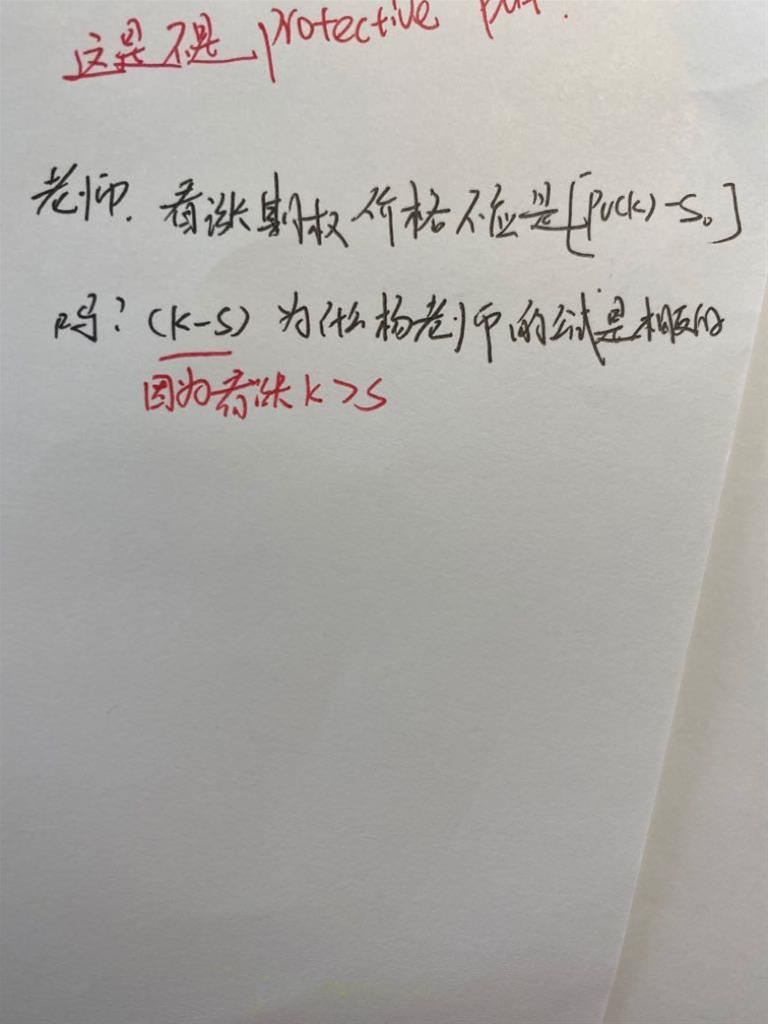 这是不是 protective put.
老师. 看涨期权价格不应是[PV(K)-S₀]
吗? (K-S) 为什么杨老师的公式是相反的
因为看跌 K>S